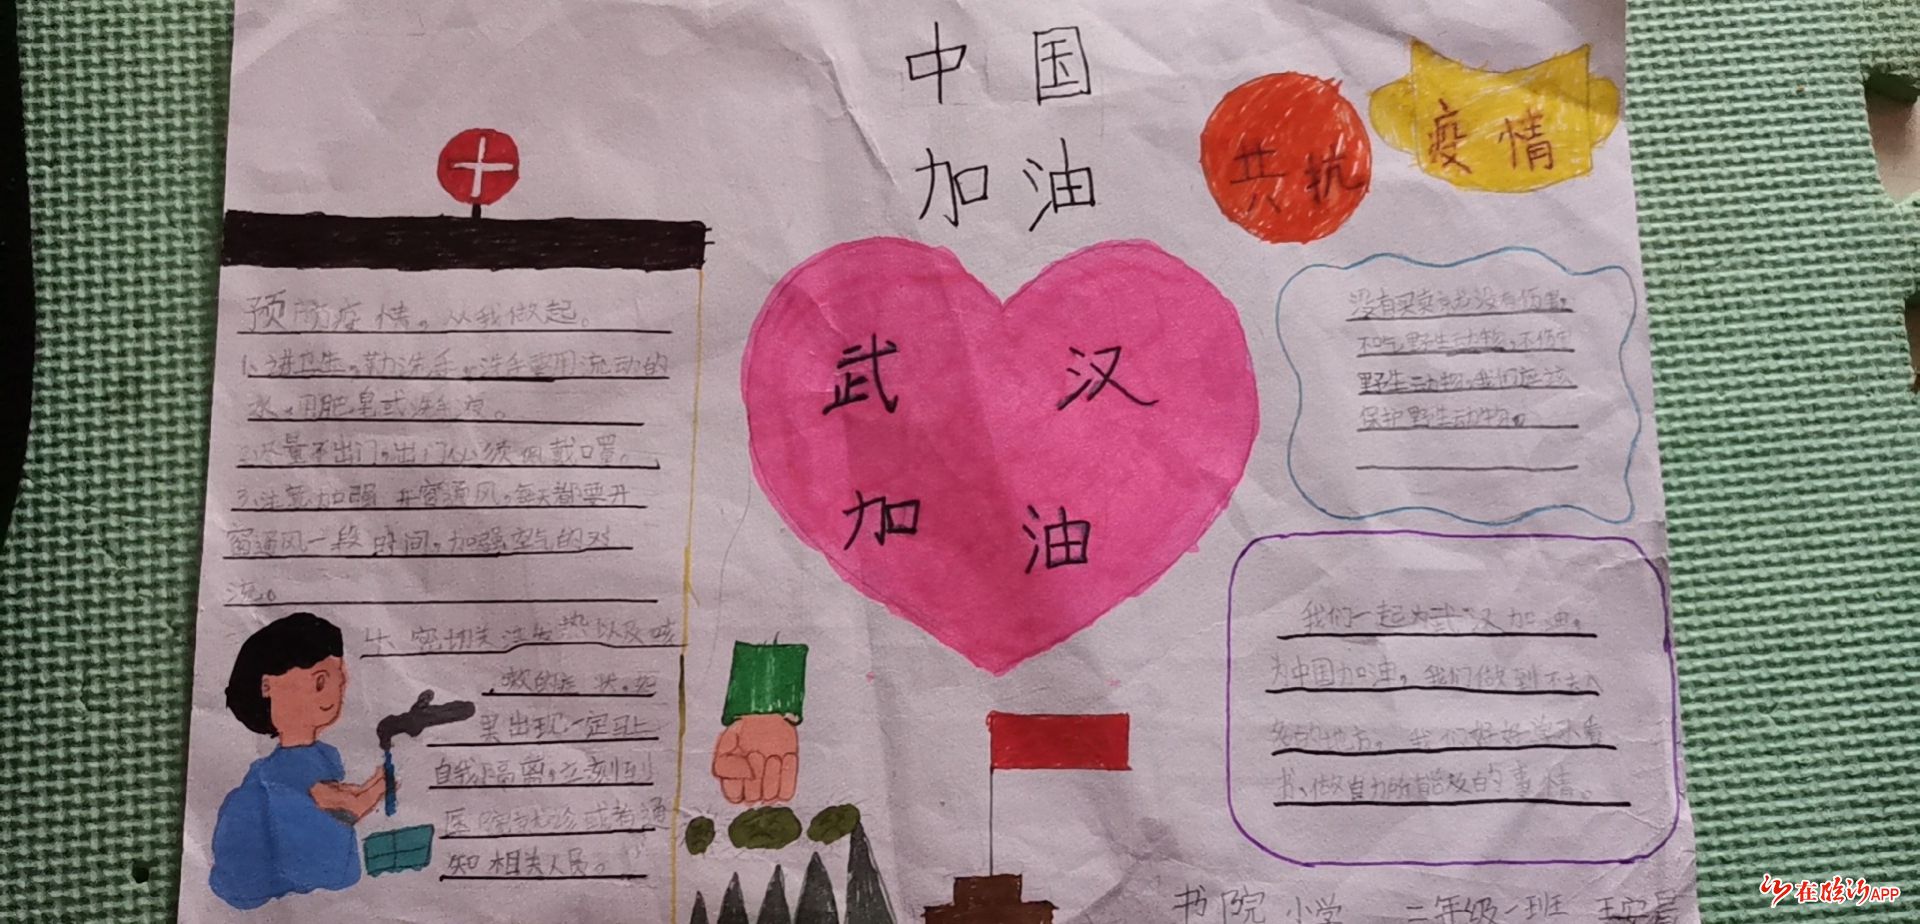 中国
加油
共抗
疫情
武汉
加油
预防疫情，从我做起。
1、讲卫生，勤洗手，洗手要用流动的
水，用肥皂或洗手液。
2、尽量不出门，出门必须佩戴口罩。
3、注意加强开窗通风，每天都要开
窗通风一段时间，加强空气的对
流。
4、密切关注发热以及咳
嗽的症状，如
果出现一定马上
自我隔离，立刻到
医院去就诊或者通
知相关人员。
没有买卖就没有伤害。
不吃野生动物，不伤害
野生动物，我们应该
保护野生动物。
我们一起为武汉加油，
为中国加油，我们做到不去人
多的地方，我们好好学习看
书、做自力所能及的事情。
书院小学 二年级一班
在临沂APP